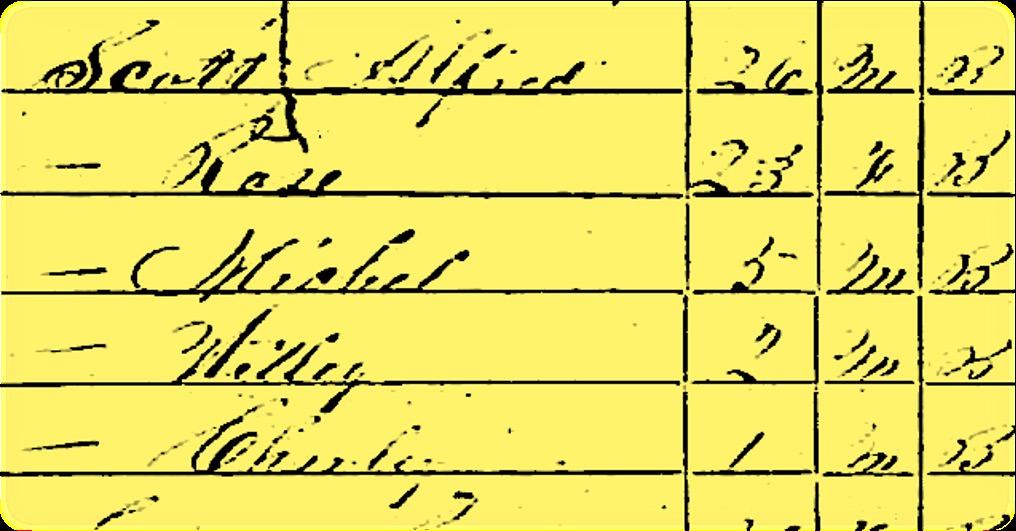 Scott Alfred 26 m B
— Rose 23 f B
— Michel 5 m B
— Willey m B
— Charley 1 m B